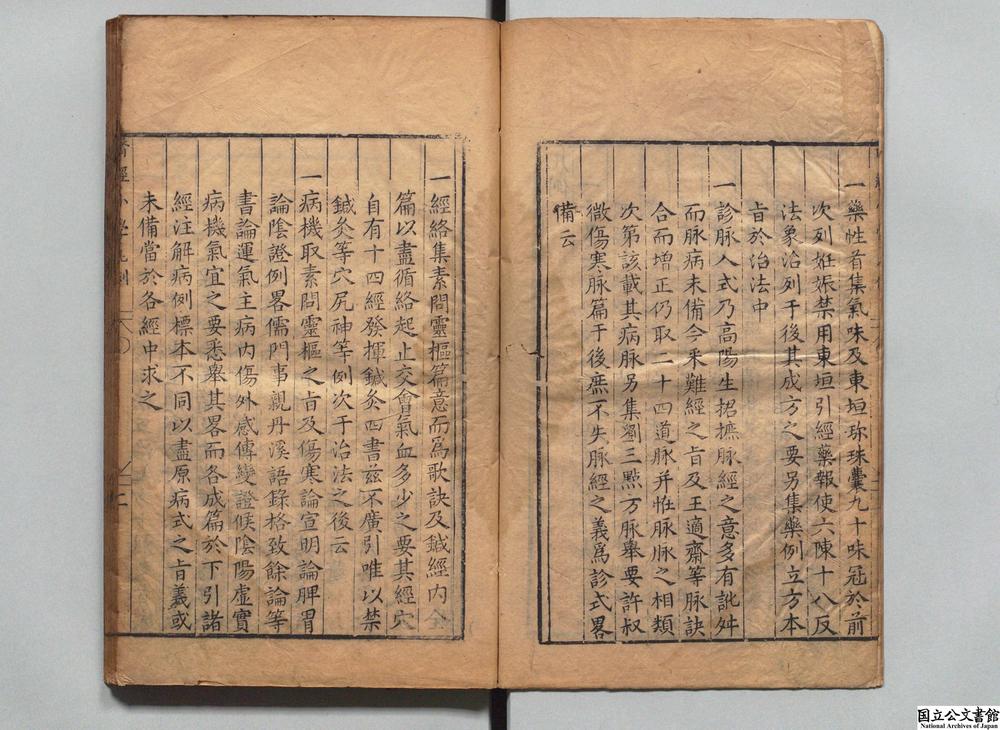 一藥性首集氣味及東垣珎珠囊九十味冠於前
次列妊娠禁用東垣引經藥報使六陳十八反
法象治列于後其成方之要另集藥例立方本
㫖於治法中
一診脉入式乃高陽生捃摭脉經之意多有訛舛
而脉病未備今采難經之㫖及王適齋等脉訣
合而增正仍取二十四道脉并恠脉脉之相類
次第該載其病脉另集劉三㸃方脉舉要許叔
微傷寒脉篇于後庶不失脉經之義爲診式畧
備云
一經絡集素問靈樞篇意而爲歌訣及鍼經内
篇以盡循絡起止交會氣血多少之要其經穴
自有十四經發揮鍼灸四書兹不廣引唯以禁
鍼灸等穴尻神等例次于治法之後云
一病機取素問靈樞之㫖及傷寒論宣明論脾胃
論陰證例畧儒門事親丹溪語錄格致餘論等
書論運氣主病内傷外感傳變證候陰陽虛實
病機氣宜之要悉舉其畧而各成篇於下引諸
經注解病例標本不同以盡原病式之㫖義或
未備當於各經中求之
國立公文書館
National Archives of Japan